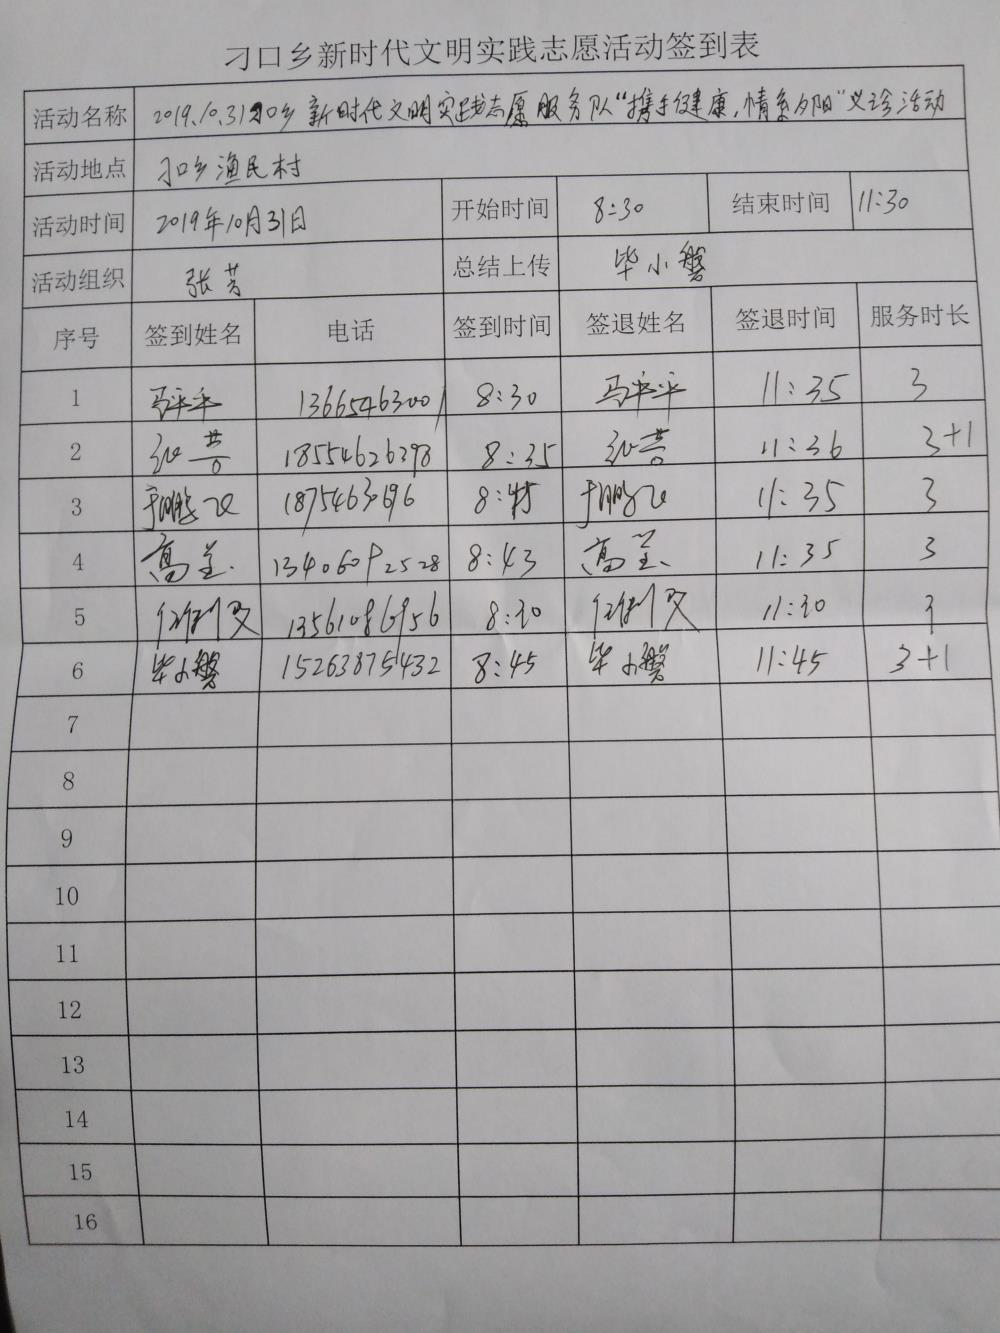 刁口乡新时代文明实践志愿活动签到表
活动名称 2019.10.31刁口乡新时代文明实践志愿服务队“携手促健康,情系夕阳”义诊活动
活动地点 刁口乡渔民村
活动时间 2019年10月31日 开始时间 8:30 结束时间 11:30
活动组织 张芳 总结上传 毕小馨
序号 签到姓名 电话 签到时间 签退姓名 签退时间 服务时长
1 马平平 13665463001 8:30 马平平 11:35 3
2 18554626398 8:35 11:36 3+1
3 于鹏飞 8:45 于鹏飞 11:35 3
4 高 13406092528 8:43 高 11:35 3
5 13561086956 8:30 11:30 3
6 毕小馨 15263875432 8:45 毕小馨 11:45 3+1
7
8
9
10
11
12
13
14
15
16